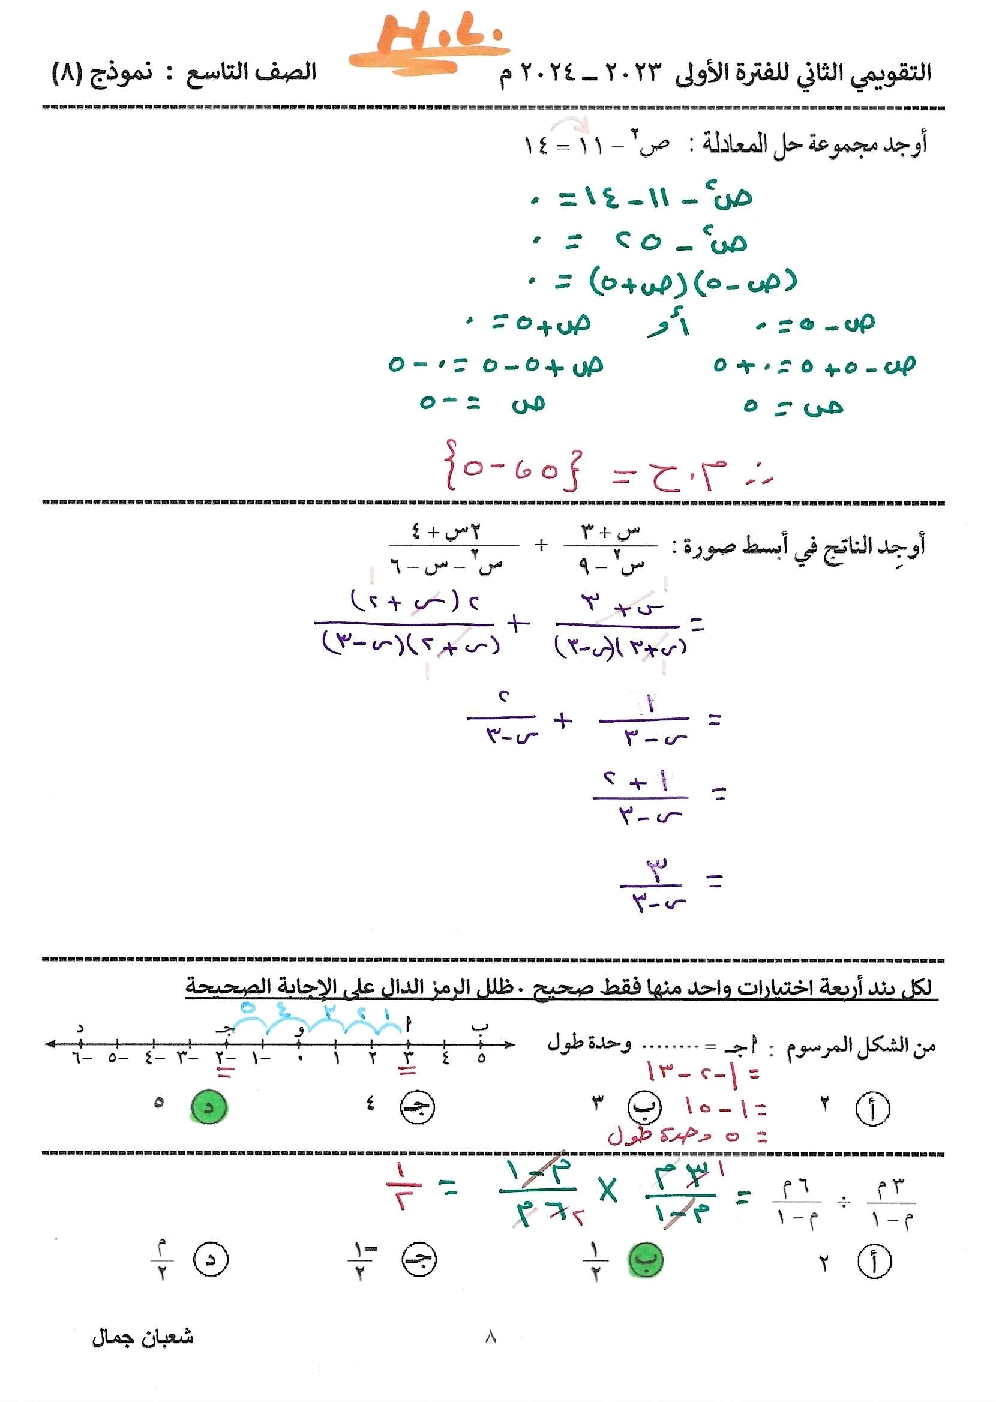 H.L.
التقويمي الثاني للفترة الأولى ٢٠٢٣ – ٢٠٢٤ م الصف التاسع : نموذج (٨)
أوجد مجموعة حل المعادلة : ص² – ١١ = ١٤
ص² – ١١ – ١٤ = ٠
ص² – ٢٥ = ٠
(ص – ٥)(ص + ٥) = ٠
ص – ٥ = ٠ أو ص + ٥ = ٠
ص – ٥ + ٥ = ٠ + ٥ ص + ٥ – ٥ = ٠ – ٥
ص = ٥ ص = – ٥
∴ م.ح = {٥ ، – ٥}
أوجِد الناتج في أبسط صورة : (س + ٣)/(س² – ٩) + (٢س + ٤)/(س² – س – ٦)
= (س + ٣)/((س + ٣)(س – ٣)) + ٢(س + ٢)/((س + ٢)(س – ٣))
= ١/(س – ٣) + ٢/(س – ٣)
= (١ + ٢)/(س – ٣)
= ٣/(س – ٣)
لكل بند أربعة اختيارات واحد منها فقط صحيح . ظلل الرمز الدال على الإجابة الصحيحة
١ ٢ ٣ ٤ ٥
ب أ و جـ د
٥ ٤ ٣ ٢ ١ ٠ –١ –٢ –٣ –٤ –٥ –٦
من الشكل المرسوم : أ جـ = ........ وحدة طول
= |–٢ – ٣|
= |–٥|
= ٥ وحدة طول
أ ٢ ب ٣ جـ ٤ د ٥
٣م/(م – ١) ÷ ٦م/(م – ١) = ٣م/(م – ١) × (م – ١)/٦م = ١/٢
أ ٢ ب ١/٢ جـ –١/٢ د م/٢
٨
شعبان جمال